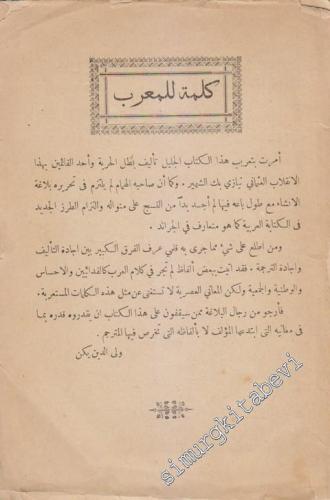 كلمة للمعرب
أمرت بتعريب هذا الكتاب الجليل تأليف بطل الحرية وأحد القائمين بهذا
الانقلاب العثماني نيازي بك الشهير . وكما أن صاحبه الهمام لم يلتزم في تحريره بلاغة
الانشاء مع طول باعه فيها لم أجد بداً من النسج على منواله والتزام الطرز الجديد
في الكتابة العربية كما هو متعارف في الجرائد .
ومن اطلع على شيء مما جرى به قلمي عرف الفرق الكبير بين اجادة التأليف
واجادة الترجمة . فقد اتيت ببعض ألفاظ لم تجر في كلام العرب كالفدائيين والاحساس
والوطنية والجمعية ولكن المعاني العصرية لا تستغنى عن مثل هذه الكلمات المستعربة .
فأرجو من رجال البلاغة ممن سيقفون على هذا الكتاب ان يقدروه قدره بما
في معانيه التى ابتدعها المؤلف لا بألفاظه التى تخرص فيها المترجم .
ولى الدين يكن
simurgkitabevi.com